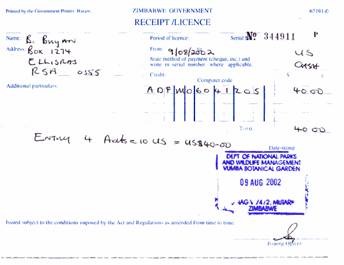 Printed by the Government Printer, Harare
ZIMBABWE GOVERNMENT
RECEIPT/LICENCE
Name B. Bryan
Period of licence
Serial No 344911 P
Address Box 1274
From 9/08/2002
US
ELLISRAS
State method of payment (cheque, etc.) and
write in serial number where applicable.
CASH
RSA 0555
Credit:
$
Computer code
Additional particulars
A D F M 0 6 0 4 1 2 0 5
40 00
Total
40 00
ENTRY 4 Adults @ 10 US = US$40-00
Date-stamp
DEPT OF NATIONAL PARKS
AND WILDLIFE MANAGEMENT
VUMBA BOTANICAL GARDEN
09 AUG 2002
MUTARE
ZIMBABWE
Issued subject to the conditions imposed by the Act and Regulations as amended from time to time.
Issuing Officer